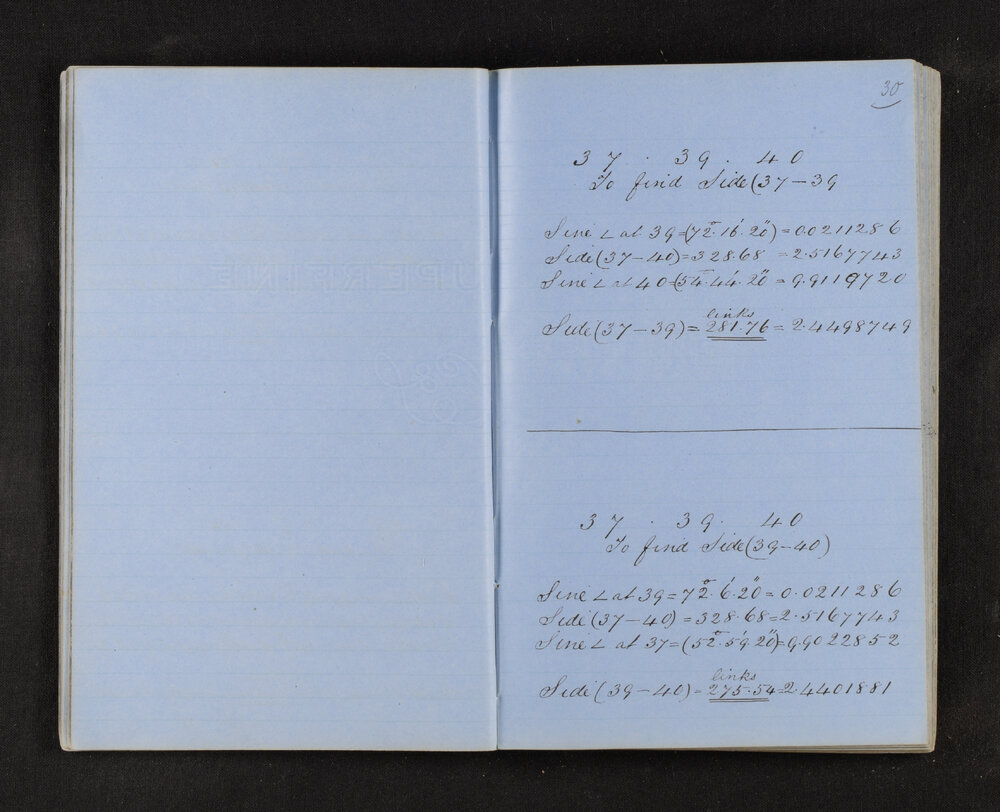 30
37 . 39 . 40
To find Side (37 — 39
Sine ∠ at 39 = (72°. 16'. 20") = 0.0211286
Side (37 — 40) = 328.68 = 2.5167743
Sine ∠ at 40 = (54°. 44'. 20" = 9.9119720
links
Side (37 — 39) = 281.76 = 2.4498749
37 . 39 . 40
To find Side (39 — 40)
Sine ∠ at 39 = 72°. 6'. 20" = 0.0211286
Side (37 — 40) = 328.68 = 2.5167743
Sine ∠ at 37 = (52°. 59'. 20") = 9.9022852
links
Side (39 — 40) = 275.54 = 2.4401881